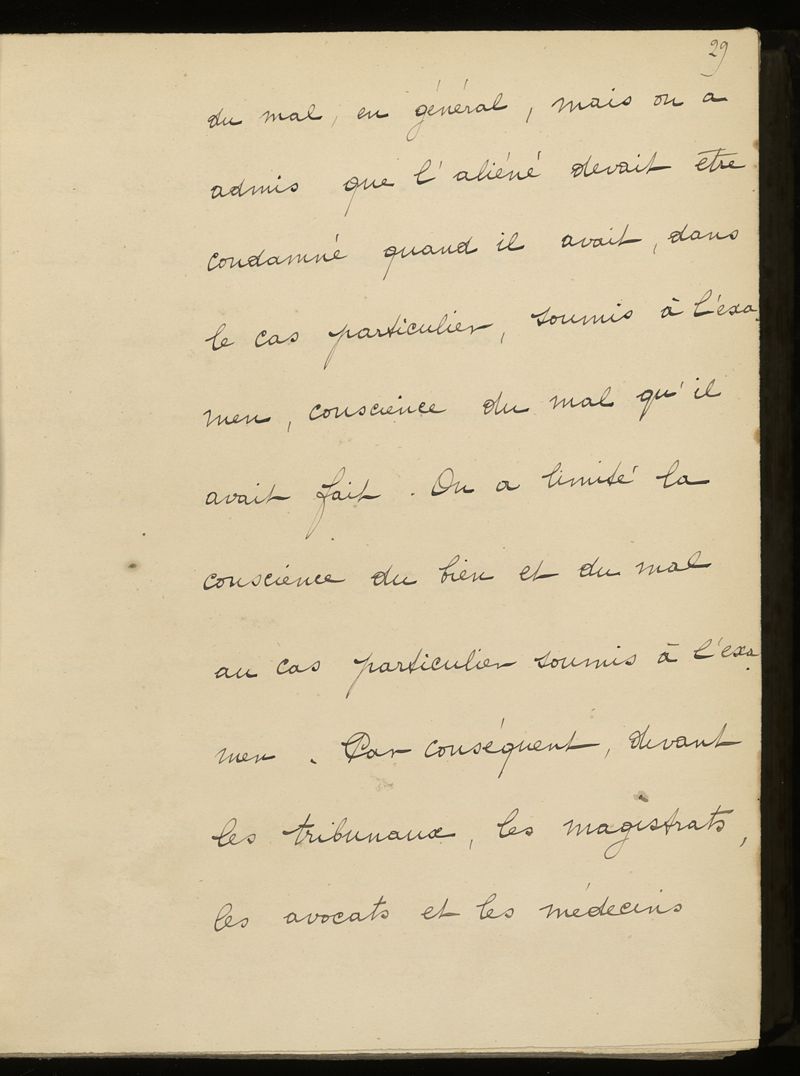 29
du mal, en général, mais on a
admis que l'aliéné devait etre
condamné quand il avait, dans
le cas particulier, soumis à l'exa-
men, conscience du mal qu'il
avait fait. On a limité la
conscience du bien et du mal
au cas particulier soumis à l'exa-
men. Par conséquent, devant
les tribunaux, les magistrats,
les avocats et les médecins